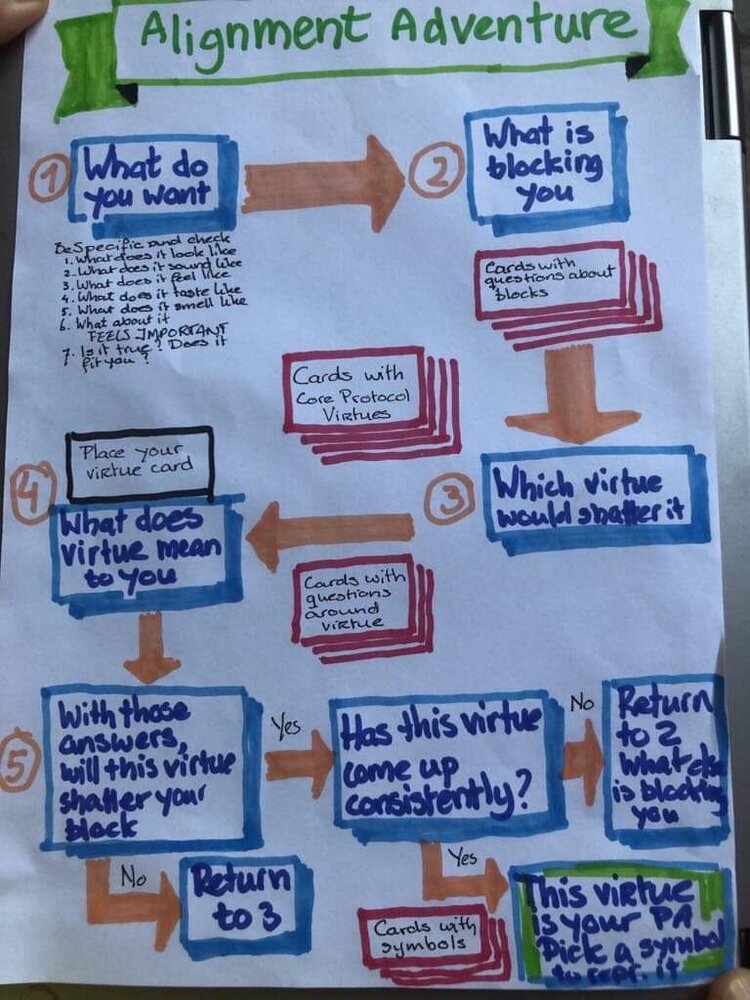 Alignment Adventure
1
What do
you want
2
What is
blocking
you
Be Specific and check
1. What does it look like
2. What does it sound like
3. What does it feel like
4. What does it taste like
5. What does it smell like
6. What about it
FEELS IMPORTANT
7. Is it true? Does it
fit you?
Cards with
questions about
blocks
Cards with
Core Protocol
Virtues
Place your
virtue card
3
Which virtue
would shatter it
4
What does
virtue mean
to you
Cards with
questions
around
virtue
5
With those
answers,
will this virtue
shatter your
block
Yes
Has this virtue
come up
consistently?
No
Return
to 2
What else
is blocking
you
No
Return
to 3
Yes
Cards with
symbols
This virtue
is your PA
Pick a symbol
to repr. it